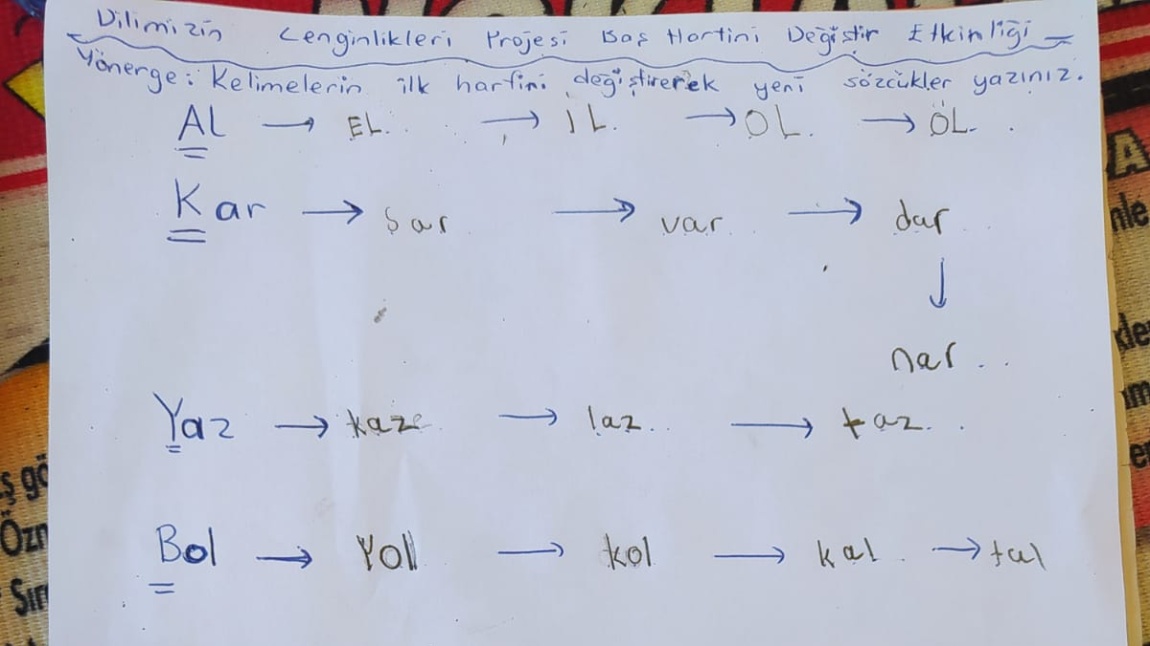 Dilimizin Zenginlikleri Projesi Baş Harfini Değiştir Etkinliği
Yönerge: Kelimelerin ilk harfini değiştirerek yeni sözcükler yazınız.
AL → EL → İL → OL → ÖL
Kar → sar → var → dar
↓
nar
Yaz → kaz → laz → taz
Bol → Yol → kol → kal → tal
A
nle
kle
ş gö
Özn